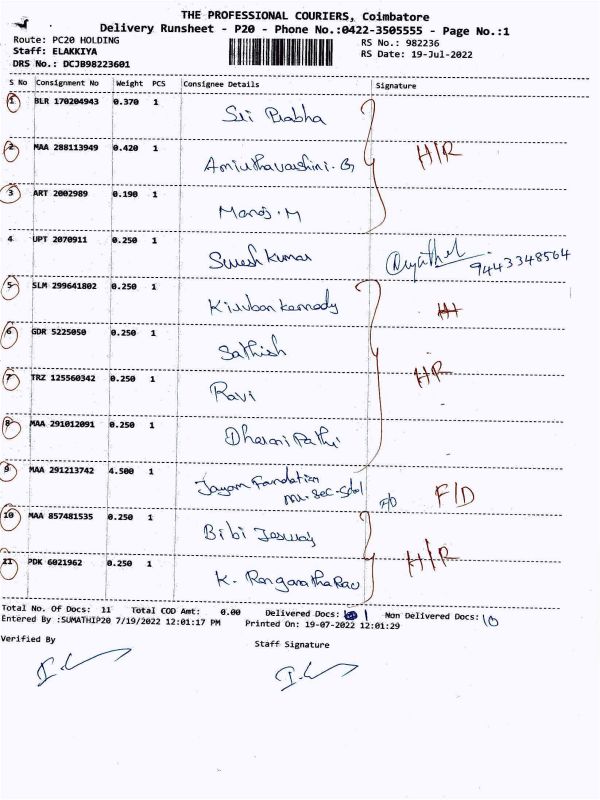 THE PROFESSIONAL COURIERS, Coimbatore
Delivery Runsheet - P20 - Phone No.:0422-3505555 - Page No.:1
Route: PC20 HOLDING RS No.: 982236
Staff: ELAKKIYA RS Date: 19-Jul-2022
DRS No.: DCJB98223601
S No Consignment No Weight PCS Consignee Details Signature
1 BLR 170204943 0.370 1
Sri Prabha
2 MAA 288113949 0.420 1 H/R
Amiruthavarshini. G
3 ART 2002989 0.190 1
Manoj. M
4 UPT 2070911 0.250 1
Suresh Kumar 9443348564
5 SLM 299641802 0.250 1
Kiruban kennady
6 GDR 5225050 0.250 1
Sathish
7 TRZ 125560342 0.250 1 H/R
Ravi
8 MAA 291012091 0.250 1
Dharani Pathi
9 MAA 291213742 4.500 1
Jayam Foundation F/D
10 MAA 857481535 0.250 1
Bibi
11 PDK 6021962 0.250 1 H/R
K. Ranganatha Rao
Total No. Of Docs: 11 Total COD Amt: 0.00 Delivered Docs: 1 Non Delivered Docs: 10
Entered By :SUMATHIP20 7/19/2022 12:01:17 PM Printed On: 19-07-2022 12:01:29
Verified By Staff Signature